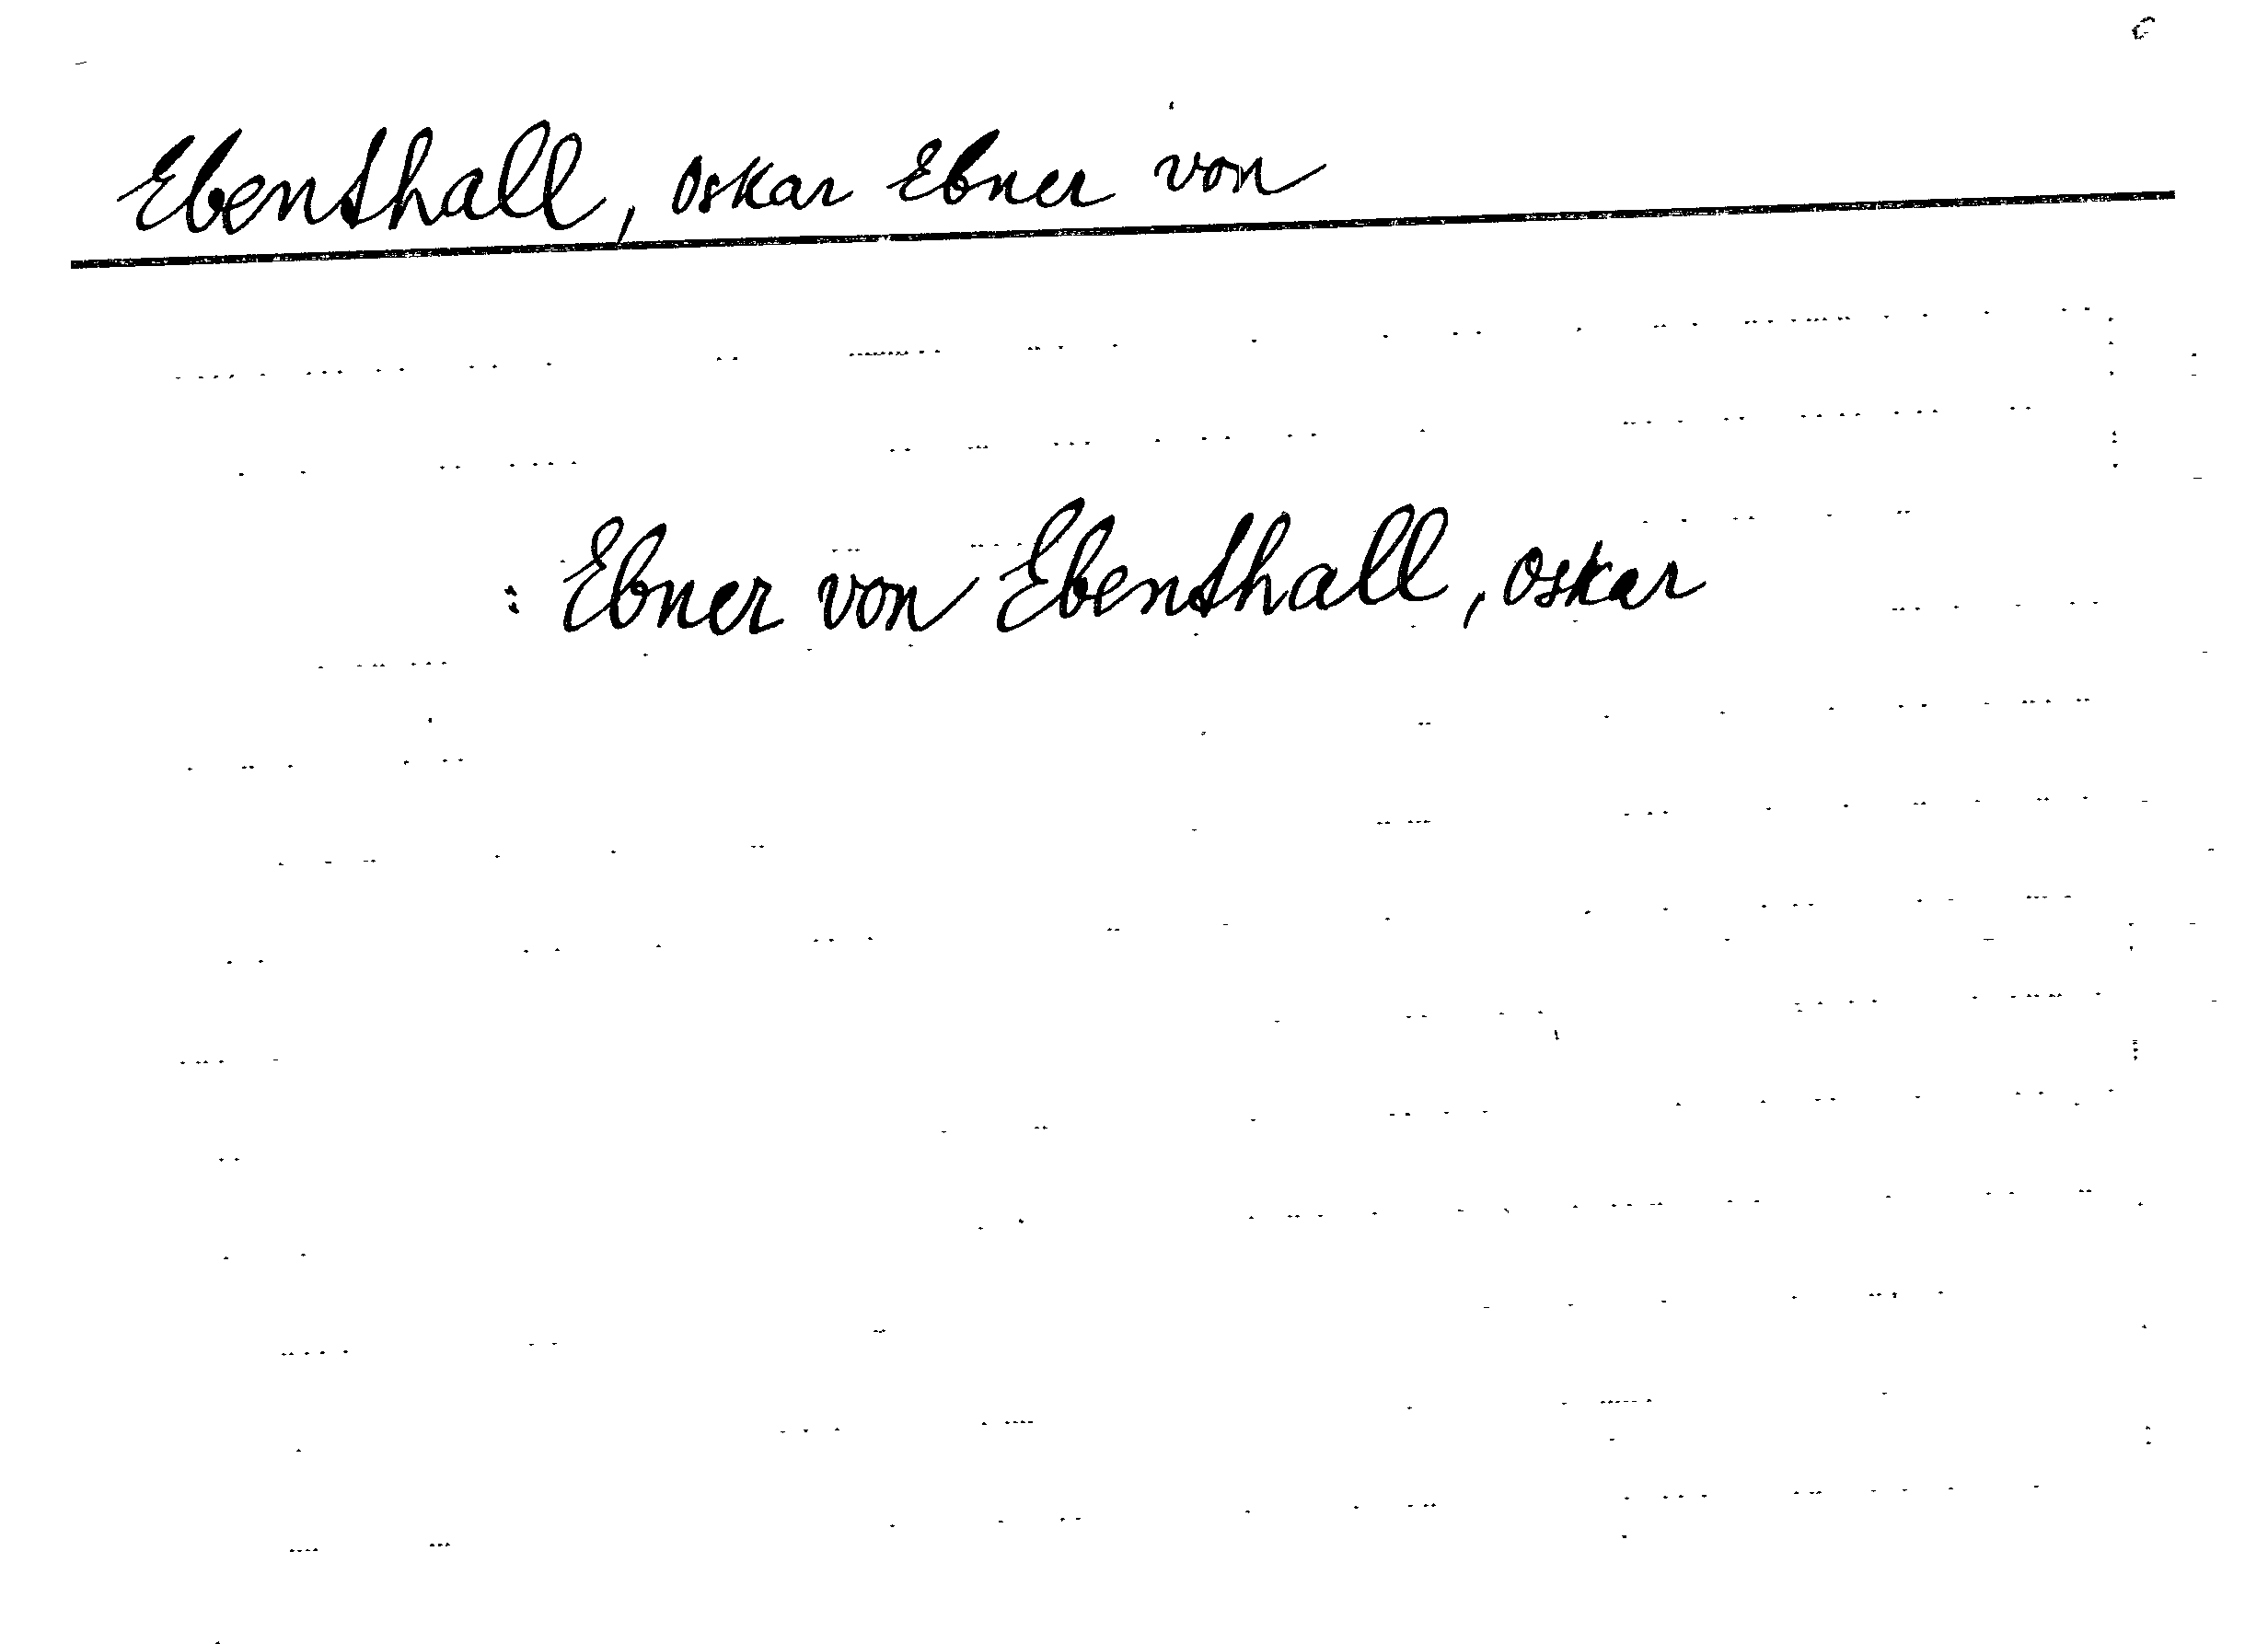 Ebenthall, Oskar Ebner von
: Ebner von Ebenthall, Oskar